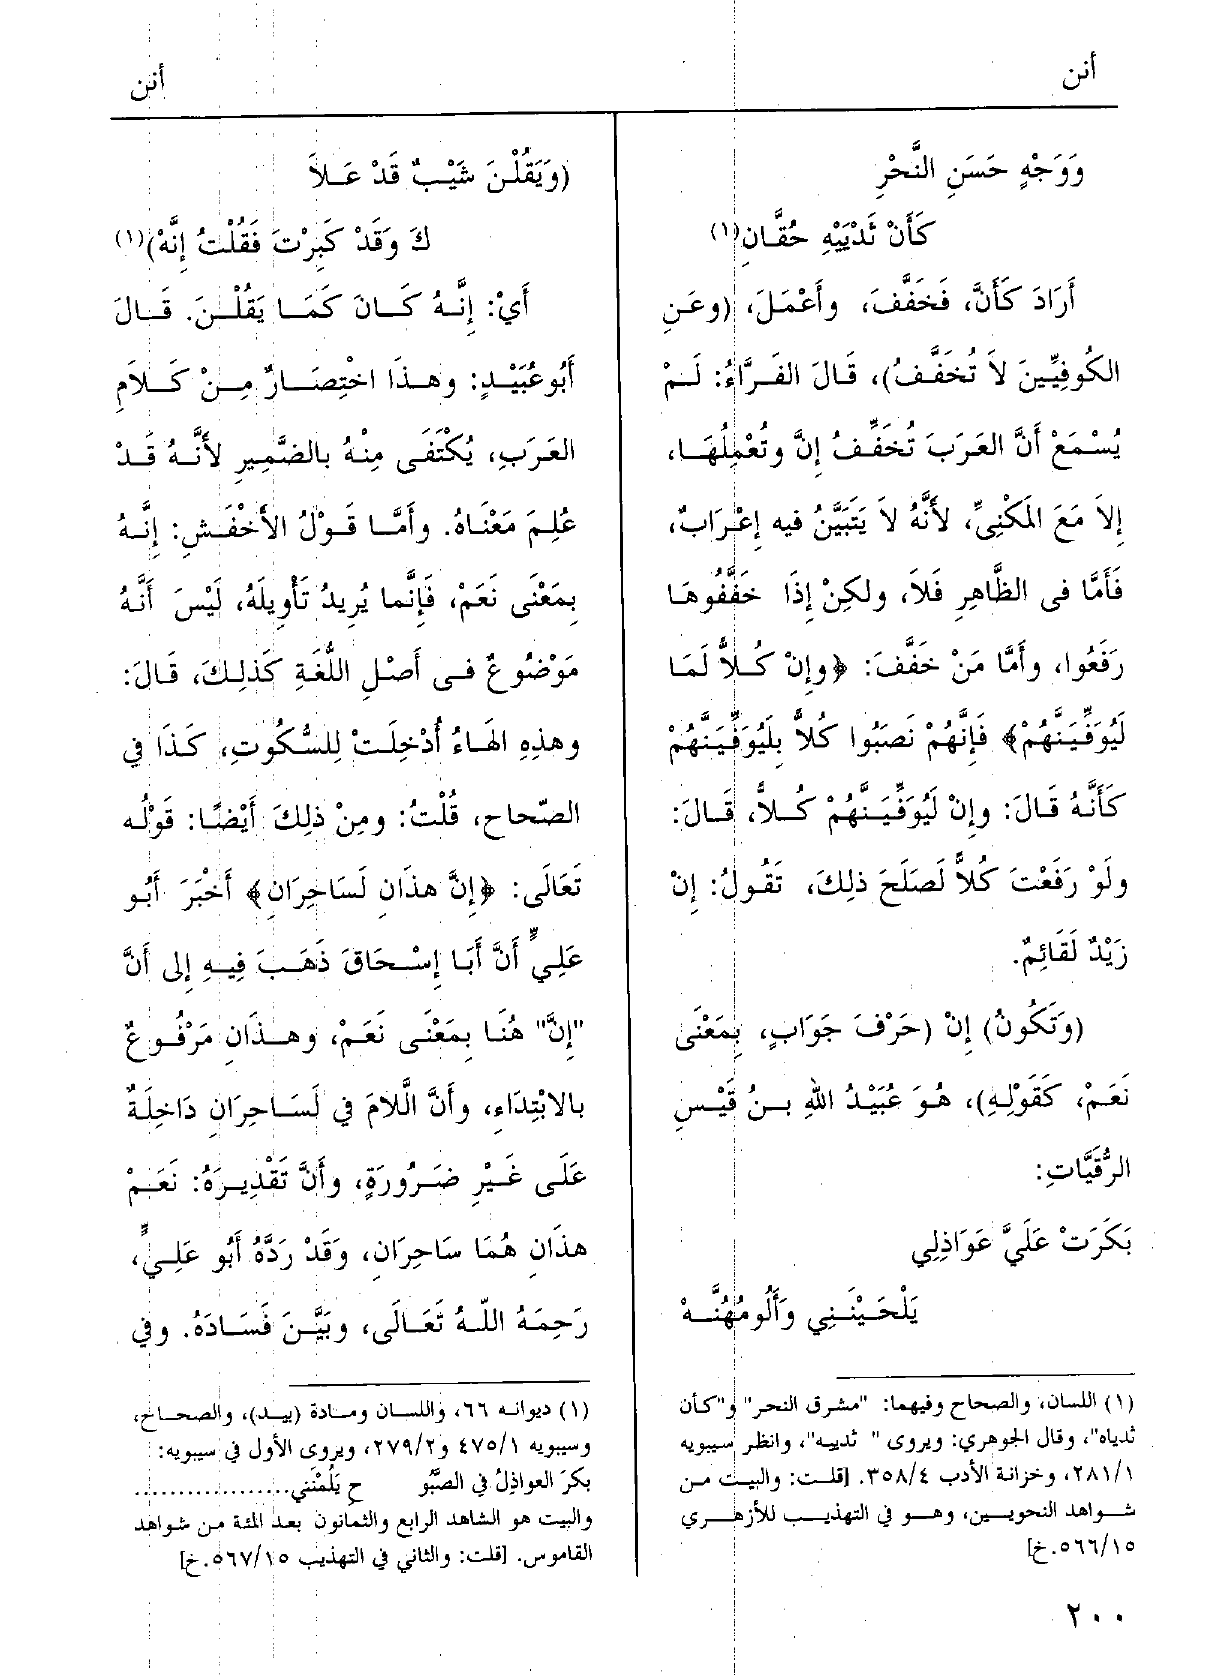 أنن
أنن
وَوَجْهٍ حَسَنِ النَّحْرِ
كَأَنْ ثَدْيَيْهِ حُقَّانِ(١)
أَرَادَ كَأَنَّ، فَخَفَّفَ، وأَعْمَلَ، (وعَنِ
الكُوفِيِّينَ لاَ تُخَفَّفُ)، قَالَ الفَرَّاءُ: لَمْ
يُسْمَعْ أَنَّ العَرَبَ تُخَفِّفُ إِنَّ وتُعْمِلُهَا،
إِلاَ مَعَ المَكْنِيِّ، لأَنَّهُ لاَ يَتَبَيَّنُ فيه إِعْرَابٌ،
فَأَمَّا فى الظَّاهِرِ فَلاَ، ولكِنْ إِذَا خَفَّفُوهَا
رَفَعُوا، وأَمَّا مَنْ خَفَّفَ: ﴿وإِنْ كُلاًّ لَمَا
لَيُوَفِّيَنَّهُمْ﴾ فَإِنَّهُمْ نَصَبُوا كُلاًّ بِلَيُوَفِّيَنَّهُمْ
كَأَنَّهُ قَالَ: وإِنْ لَيُوَفِّيَنَّهُمْ كُلاًّ، قَالَ:
ولَوْ رَفَعْتَ كُلاًّ لَصَلَحَ ذلِكَ، تَقُولُ: إِنْ
زَيْدٌ لَقَائِمٌ.
(وَتَكُونُ) إِنْ (حَرْفَ جَوَابٍ، بِمَعْنَى
نَعَمْ، كَقَوْلِهِ)، هُوَ عُبَيْدُ اللهِ بنُ قَيْسِ
الرُّقَيَّاتِ:
بَكَرَتْ عَلَيَّ عَوَاذِلِي
يَلْحَيْنَنِي وَأَلُومُهُنَّهْ
(١) اللسان، والصحاح وفيهما: "مشرق النحر" و"كأن
ثدياه"، وقال الجوهري: ويروى " ثدييه"، وانظر سيبويه
٢٨١/١، وخزانة الأدب ٣٥٨/٤. [قلت: والبيت من
شواهد النحويين، وهو في التهذيب للأزهري
٥٦٦/١٥.خ]
(وَيَقُلْنَ شَيْبٌ قَدْ عَلاَ
كَ وَقَدْ كَبِرْتَ فَقُلْتُ إِنَّهْ)(١)
أَيْ: إِنَّهُ كَانَ كَمَا يَقُلْنَ. قَالَ
أَبُوعُبَيْدٍ: وهذَا اخْتِصَارٌ مِنْ كَلاَمِ
العَرَبِ، يُكْتَفَى مِنْهُ بالضَّمِيرِ لأَنَّهُ قَدْ
عُلِمَ مَعْنَاهُ. وأَمَّا قَوْلُ الأَخْفَشِ: إِنَّهُ
بِمَعْنَى نَعَمْ، فَإِنَّما يُرِيدُ تَأْوِيلَهُ، لَيْسَ أَنَّهُ
مَوْضُوعٌ فى أَصْلِ اللُّغَةِ كَذلِكَ، قَالَ:
وهذِهِ الهَاءُ أُدْخِلَتْ لِلسُّكُوتِ، كَذَا في
الصّحاح، قُلْتُ: ومِنْ ذلِكَ أَيْضًا: قَوْلُه
تَعَالَى: ﴿إِنَّ هذَانِ لَسَاحِرَانِ﴾ أَخْبَرَ أَبُو
عَلِيٍّ أَنَّ أَبَا إِسْحَاقَ ذَهَبَ فِيهِ إلى أَنَّ
"إِنَّ" هُنَا بِمَعْنَى نَعَمْ، وهذَانِ مَرْفُوعٌ
بالابْتِدَاءِ، وأَنَّ اللَّامَ في لَسَاحِرَانِ دَاخِلَةٌ
عَلَى غَيْرِ ضَرُورَةٍ، وأَنَّ تَقْدِيرَهُ: نَعَمْ
هذَانِ هُمَا سَاحِرَانِ، وَقَدْ رَدَّهُ أَبُو عَلِيٍّ،
رَحِمَهُ اللَّهُ تَعَالَى، وبَيَّنَ فَسَادَهُ. وفي
(١) ديوانه ٦٦، واللسان ومادة (بيد)، والصحاح،
وسيبويه ٤٧٥/١ و٢٧٩/٢، ويروى الأول في سيبويه:
بكرَ العواذِلُ في الصَّبُو حِ يَلُمْنَنِي.................
والبيت هو الشاهد الرابع والثمانون بعد المئة من شواهد
القاموس. [قلت: والثاني في التهذيب ٥٦٧/١٥.خ]
٢٠٠